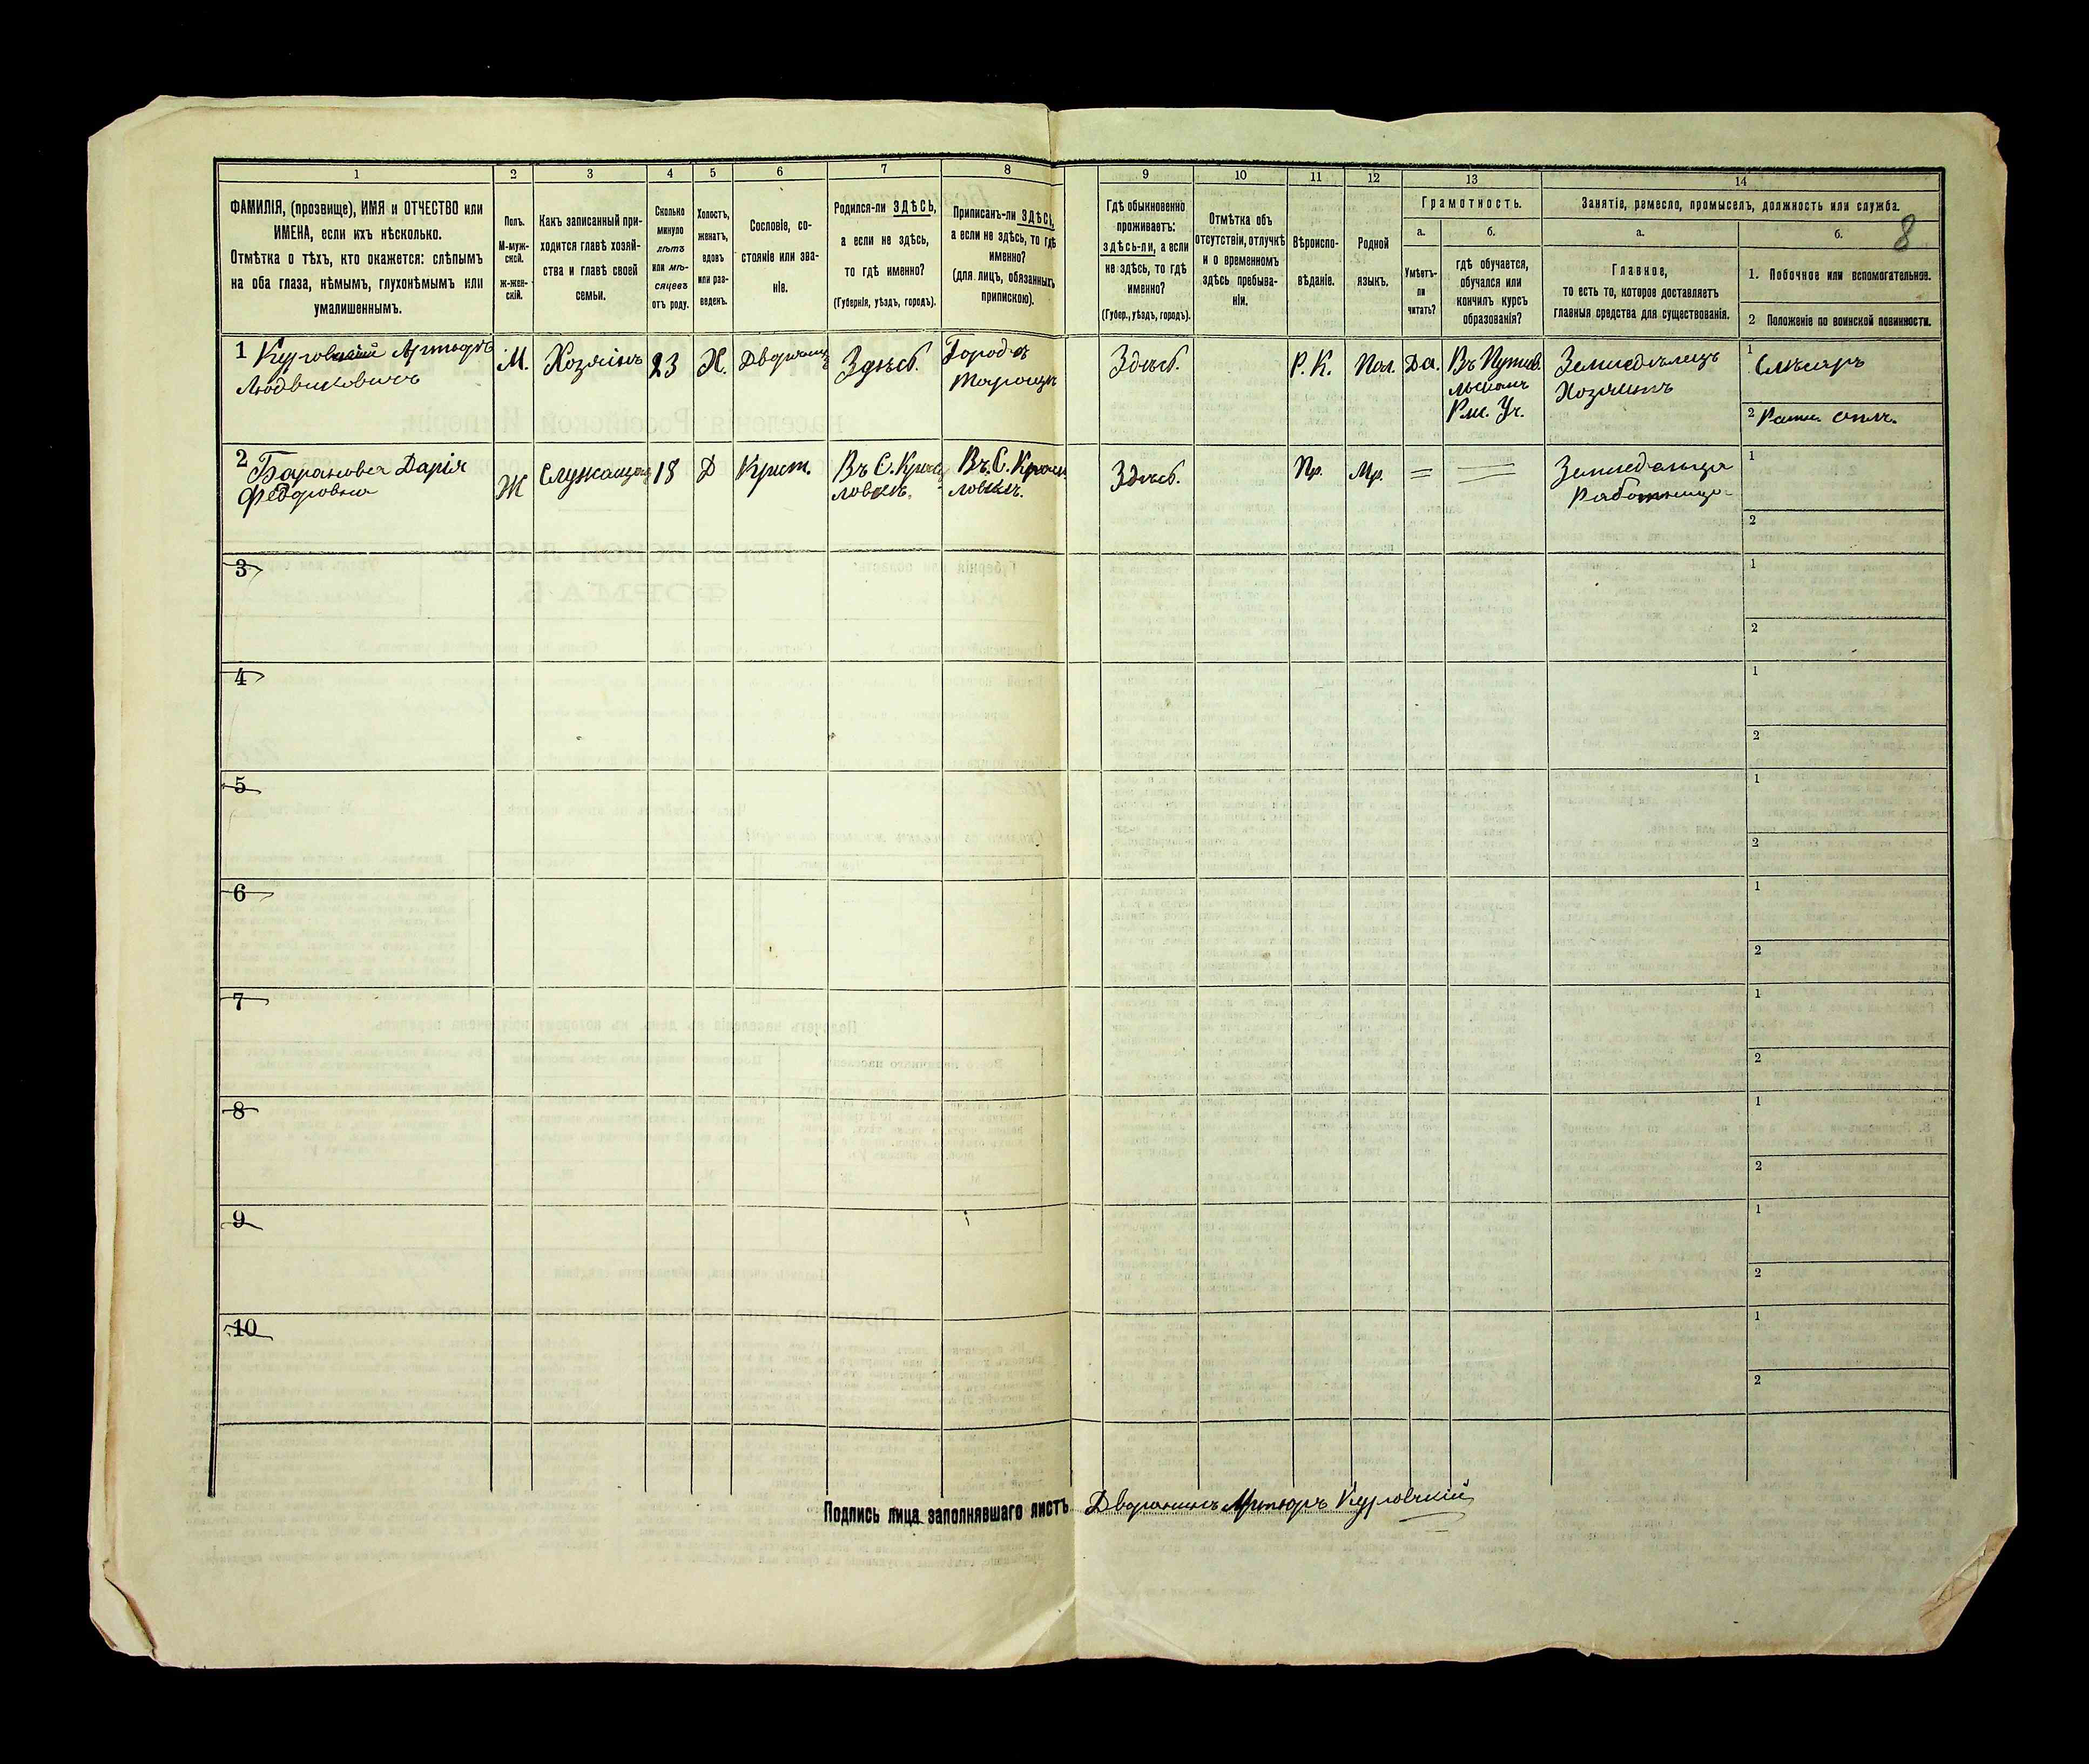 1 2 3 4 5 6 7 8 9 10 11 12 13 14
8
ФАМИЛІЯ, (прозвище), ИМЯ и ОТЧЕСТВО или
ИМЕНА, если ихъ нѣсколько.
Отмѣтка о тѣхъ, кто окажется: слѣпымъ
на оба глаза, нѣмымъ, глухонѣмымъ или
умалишеннымъ.
Полъ.
М-муж-
ской.
ж-жен-
скій.
Какъ записанный при-
ходится главѣ хозяй-
ства и главѣ своей
семьи.
Сколько
минуло
лѣтъ
или мѣ-
сяцевъ
отъ роду.
Холостъ,
женатъ,
вдовъ
или раз-
веденъ.
Сословіе, со-
стояніе или зва-
ніе.
Родился-ли ЗДѢСЬ,
а если не здѣсь,
то гдѣ именно?
(Губернія, уѣздъ, городъ).
Приписанъ-ли ЗДѢСЬ,
а если не здѣсь, то гдѣ
именно?
(для лицъ, обязанныхъ
припискою).
Гдѣ обыкновенно
проживаетъ:
здѣсь-ли, а если
не здѣсь, то гдѣ
именно?
(Губер., уѣздъ, городъ).
Отмѣтка объ
отсутствіи, отлучкѣ
и о временномъ
здѣсь пребыва-
ніи.
Вѣроиспо-
вѣданіе.
Родной
языкъ.
Грамотность.
а.
Умѣетъ-
ли
читать?
б.
гдѣ обучается,
обучался или
кончилъ курсъ
образованія?
Занятіе, ремесло, промыселъ, должность или служба.
а.
Главное,
то есть то, которое доставляетъ
главныя средства для существованія.
б.
1. Побочное или вспомогательное.
2 Положеніе по воинской повинности.
1 Курловскій Артюръ
Людвиковичъ
М.
Хозяинъ
23
Х.
Дворянинъ
Здѣсь.
Городъ
Таращи
Здѣсь.
Р. К.
Пол.
Да.
Въ Путив.
льскомъ
Учл.
Земледѣлецъ
Хозяинъ
1 Слѣсарь
2 Ратн. опл.
2 Баранова Дарія
Федоровна
Ж
Служащая
18
Д
Крист.
Въ С.
ловкѣ.
Въ С.
ловкѣ.
Здѣсь.
Пр.
Мр.
=
=
Земледѣлица
Работница
1
2
3
1
2
4
1
2
5
1
2
6
1
2
7
1
2
8
1
2
9
1
2
10
1
2
Подпись лица заполнявшаго листъ Дворянинъ Артюръ Курловскій